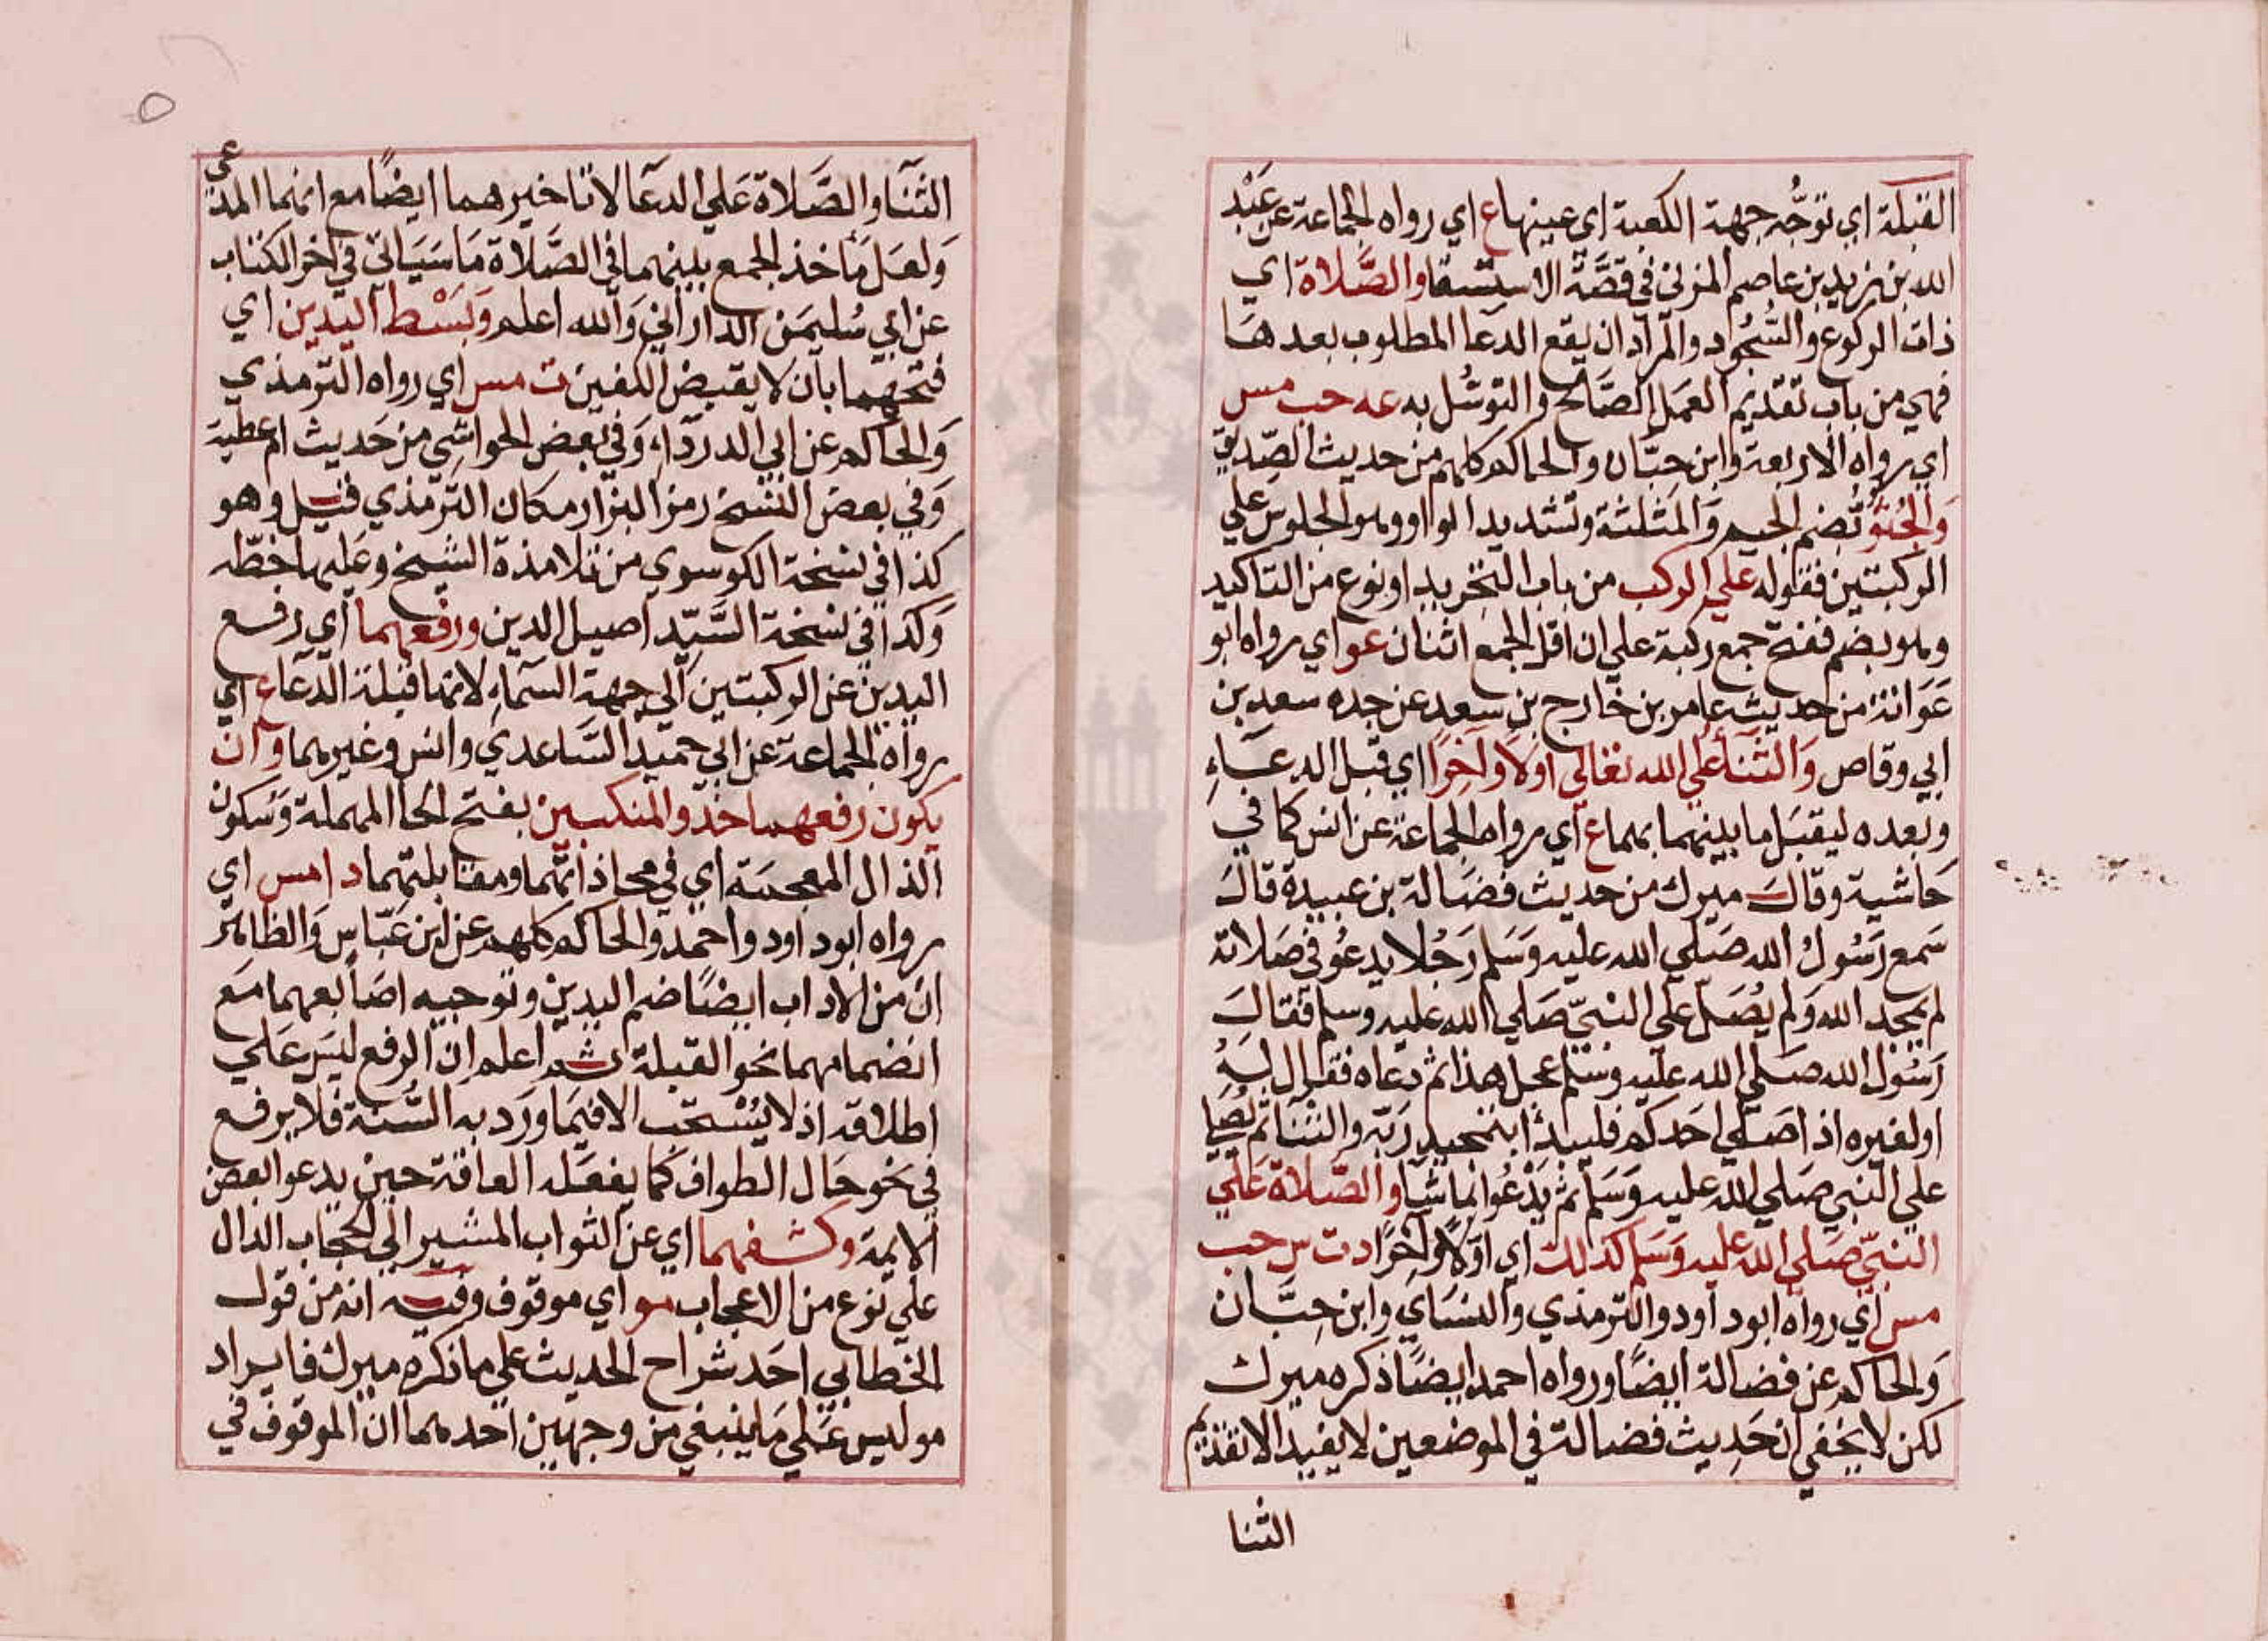 القبلة اي توجُّه جهة الكعبة اي عينها ع اي رواه الجماعة عن عَبْد
الله بن زيد بن عاصم المزني في قصَّة الاستسقا والصَّلاة اي
ذات الركوع والسُّجُود والمراد ان يقع الدعا المطلوب بعدها
فهي من باب تقديم العمل الصَّالح والتوسُّل به عه حب مس
اي رواه الاربعة وابن حبَّان والحاكم كلهم من حديث الصِّديق
وَالجُثوُّ بضم الجيم وَالمثلثة وتشديد الواو وهو الجلوس علي
الركبتين فقوله علي الركب من باب التجريد او نوع من التاكيد
وهو بضم ففتح جمع ركبة علي ان اقل الجمع اثنان عو اي رواه ابو
عَوانة من حديث عامر بن خارج بن سعد عن جده سعد بن
ابي وقاص وَالثنَّأ علَي الله تعَالي اوّلاً وآخِراً اي قبل الدعَاءِ
وبعده ليقبَل ما بينهما بهما ع اي رواه الجماعة عن انس كما في
حَاشية وقالَ ميرك من حديث فضَالة بن عبيدة قالَ
سَمع رَسُولُ الله صَلي الله عليه وَسَلم رَجُلا يدعُو في صَلاته
لم يمجد الله وَلم يُصَلّ علَي النبيّ صَلي الله عليه وسلم فقالَ
رَسُول الله صَلي الله عليه وسَلم عجل هذا ثم دعاه فقال لهُ
او لغيره اذا صَلي احَدكم فليبدأ بتمجيد رَبّه والثنا ثم يُصَلي
علي النبي صَلي الله عليه وَسَلم ثم يَدْعُوا بما شَا والصَّلاة عَلَي
النبيّ صَلي الله عليه وَسَلم كذلك اي اوّلاً وآخِراً د ت س حب
مس اي رواه ابو داود والترمذي والنسَاي وابن حِبَّان
وَالحاكم عن فضالة ايضًا ورواه احمد ايضًا ذكره ميرك
لكن لا يخفي ان حَديث فضالة في الموضعين لا يفيد الا تقديم
الثنا
الثنَا والصَّلاة عَلي الدعَا لا تاخيرهما ايضًا مع انهما المدّعى
وَلعَل مَأخذ الجمع بينهما في الصَّلاة مَا سَيَاتي في اخر الكتاب
عن ابي سُليمَن الداراني وَالله اعلم وَبَسْط اليدين اي
فتحهما بان لا يقبض الكفين ت مس اي رواه الترمذي
وَالحاكم عن ابي الدرداء، وَفي بعض الحواشي من حَديث ام عطية
وَفي بعض النسخ رمز البزار مكان الترمذي قيل وهو
كذا في نسخة الكوسوي من تلامذة الشيخ وعَليها خطّه
وَكذا في نسْخة السَّيِّد اصيل الدين ورفعهما اي رفع
اليدين عن الركبتين الَي جهة السمَاء لانها قبلة الدعَا ع اي
رواه الجماعة عن ابي حميد السَّاعدي وانس وغيرهما وان
يكون رفعهما حذو المنكبين بفتح الحا المهملة وَسكون
الذال المعجمَة اي في محاذاتهما ومقابلتهما د ا مس اي
رواه ابو داود واحمد والحاكم كلهم عن ابن عَبّاس وَالظاهر
ان من الاداب ايضًا ضم اليدين وتوجيه اصَابعهما مَع
انضمامهما نحو القبلة ثم اعلم ان الرفع ليسَ عَلَي
اطلاقه اذ لا يُسْتحَب الا فيمَا ورَد به السُّنة فلا يرفع
في نحو حَال الطواف كما يفعَله العامّة حين يدعوا بعض
الايمة وكشفهما اي عن الثواب المشير الي الحجاب الدال
علي نوع من الاعجاب مو اي موقوف وقيل انه من قول
الخطابي احَد شراح الحديث علَي ما ذكره ميرك فايراد
مو ليس عَلي مَا ينبغي من وجهين احدهما ان الموقوف في